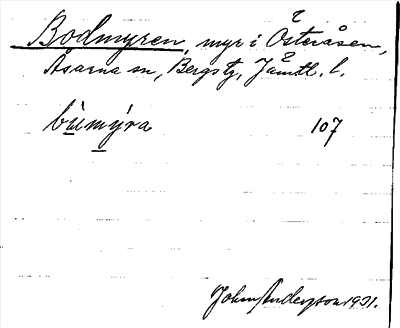 Bodmyren, myr i Österåsen,
Åsarna sn, Bergs tg, Jämtl. l.
bu̲my̲ra 107
John Anderzson 1931.